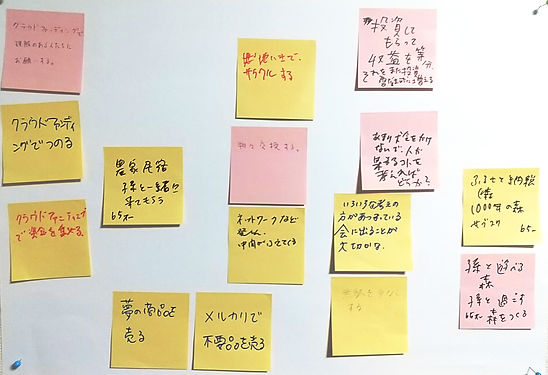 クラウドファンディングで
興味のある人たちに
お願いする。
クラウドファンディ
ングでつのる
クラウドファンディング
で資金を集める
農家民宿
孫と一緒に
来てもらう
65才-
夢の商品を
売る
メルカリで
不要品を売る
サークルする
物々交換する。
ネットワークなど
仲間がふえてくる
投資して
もらって
収益を等分
それをまた投資
あまりお金をかけ
ないで、人が
来るコトを
考えれば
どうか?
いろいろな考えの
方があつまっている
会に出ることが
大切かな
する
ふるさと納税
1000年の森
65-
孫と遊べる
森
孫と過ごす
65才- 森をつくる